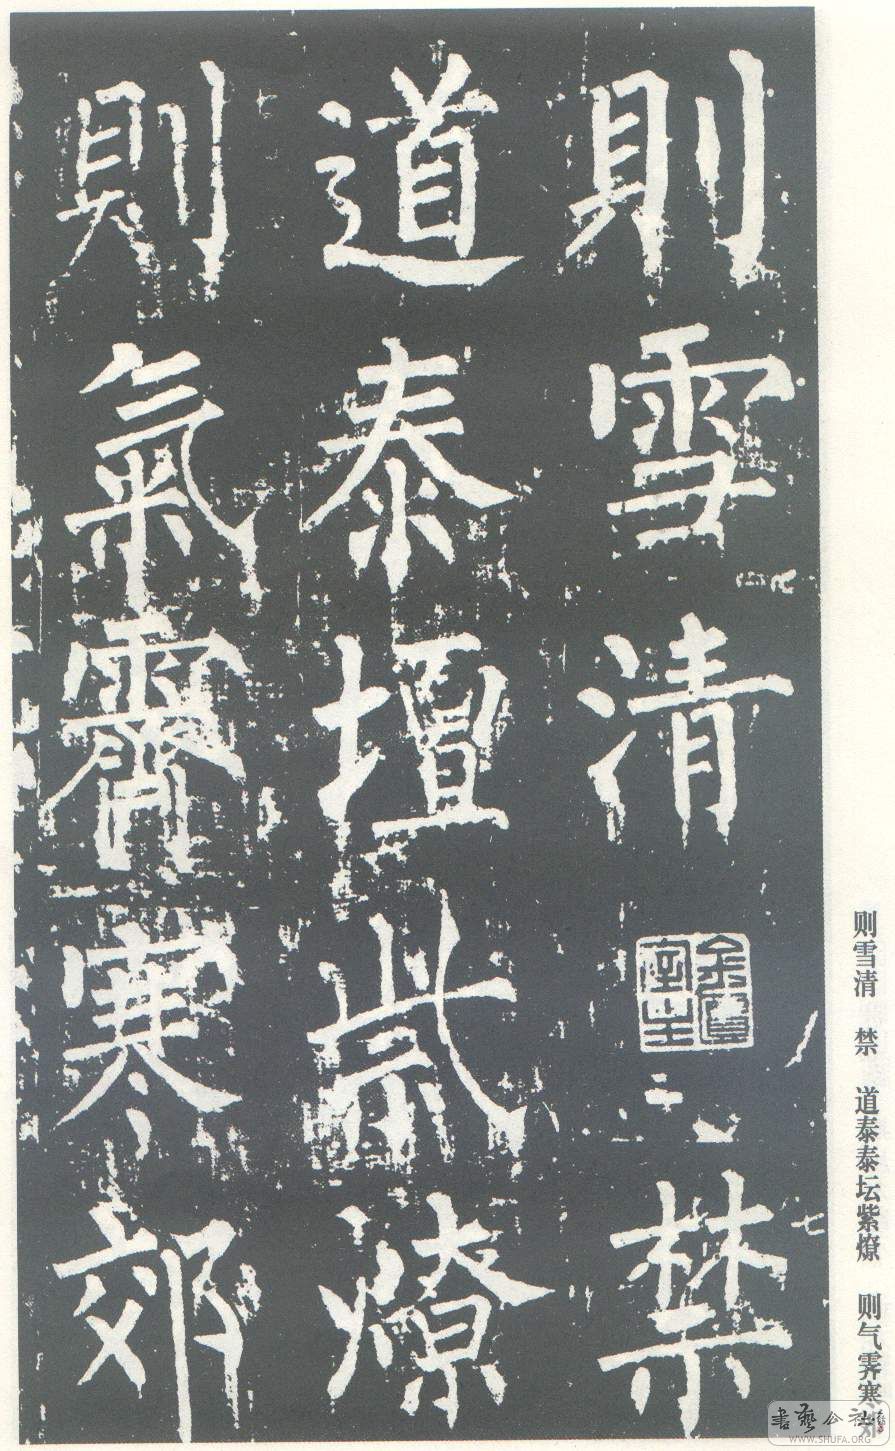 則雪清禁
道泰壇祡燎
則氣霽寒郊
则雪清 禁 道泰泰坛紫燎 则气霁寒郊
書藝公社
WWW.SHUFA.ORG